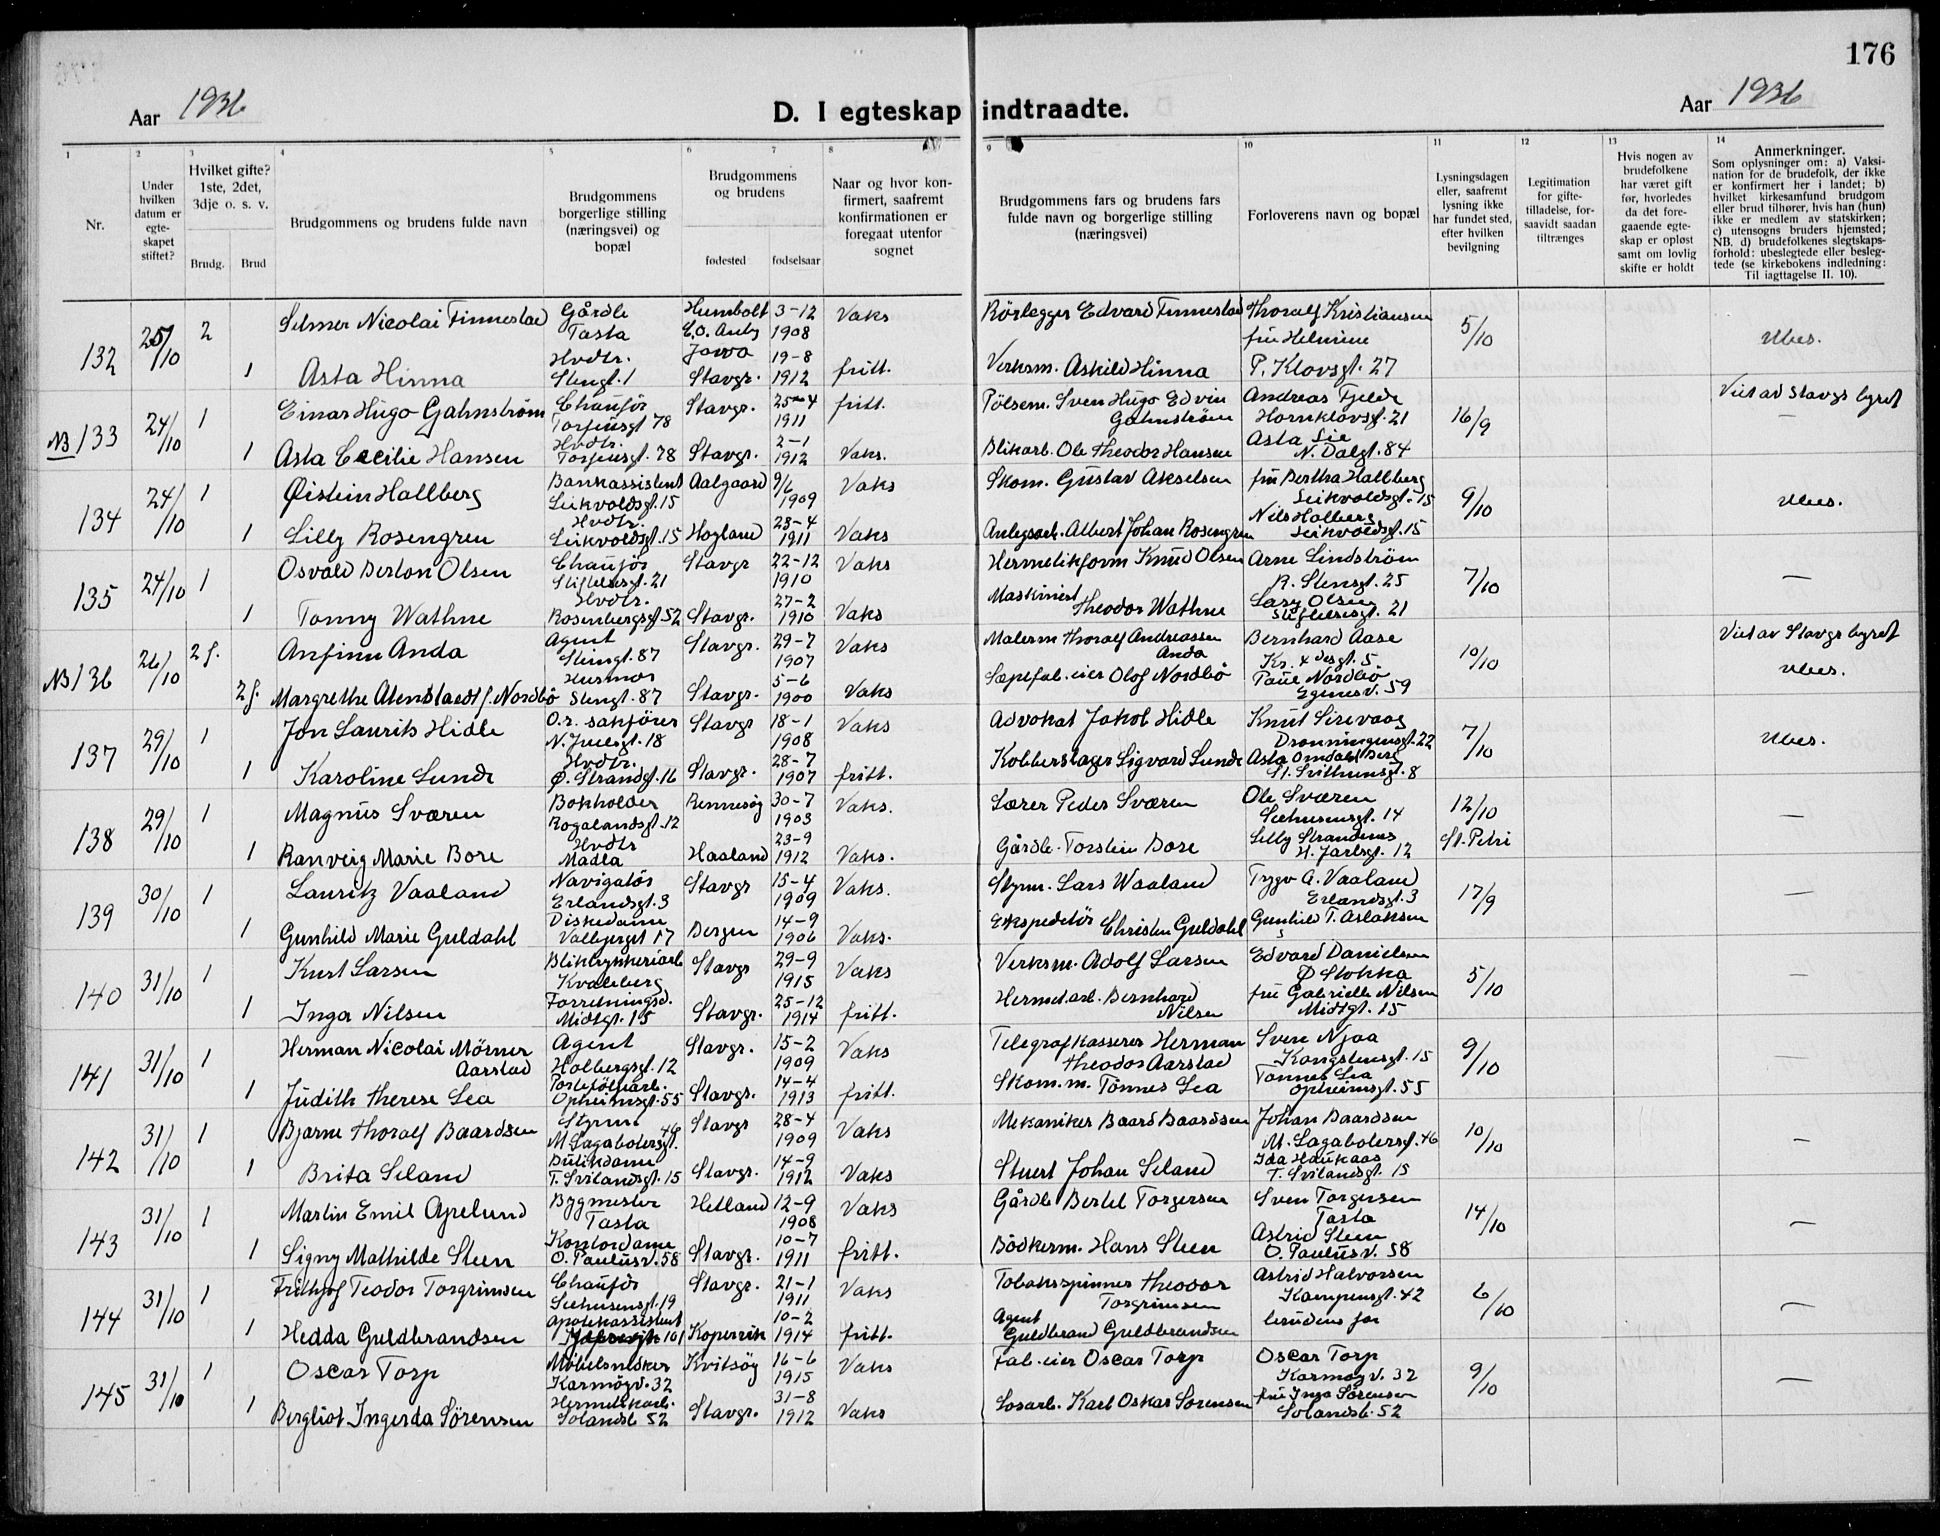 176
Aar 1936
D. I egteskap indtraadte.
Aar 1936
1 2 3 4 5 6 7 8 9 10 11 12 13 14
Nr.
Under hvilken datum er egteskapet stiftet?
Hvilket gifte? 1ste, 2det, 3dje o. s. v.
Brudg. Brud
Brudgommens og brudens fulde navn
Brudgommens borgerlige stilling (næringsvei) og bopæl
Brudgommens og brudens
fødested fødselsaar
Naar og hvor konfirmert, saafremt konfirmationen er foregaat utenfor sognet
Brudgommens fars og brudens fars fulde navn og borgerlige stilling (næringsvei)
Forloverens navn og bopæl
Lysningsdagen eller, saafremt lysning ikke har fundet sted, efter hvilken bevilgning
Legitimation for giftetilladelse, forsaavidt saadan tiltrænges
Hvis nogen av brudefolkene har været gift før, hvorledes da det foregaaende egteskap er opløst samt om lovlig skifte er holdt
Anmerkninger.
Som oplysninger om: a) Vaksination for de brudefolk, der ikke er konfirmert her i landet; b) hvilket kirkesamfund brudgom eller brud tilhører, hvis han (hun) ikke er medlem av statskirken; c) utensogns bruders hjemsted; NB. d) brudefolkenes slegtskapsforhold: ubeslegtede eller beslegtede (se kirkebokens indledning: Til iagttagelse II. 10).
132 25/10 2 Selmer Nicolai Finnestad Gårdb Tasta Humbolt C.O. Anby Jowa 3-12 1908 Vaks Rörlegger Edvard Finnestad Thoralf Kristiansen 5/10 Ubes.
1 Asta Hinna Hvdtr. Stengt. 1 Stavgr. 19-8 1912 fritt. Verksm. Askild Hinna fru Helmine P. Klovsgt. 27
NB 133 24/10 1 Einar Hugo Gahnström Chauför Torfinsgt 78 Stavgr. 25-4 1911 fritt. Pölsem. Sven Hugo Edvin Gahnström Andreas Fjelde Hornklovsgt. 21 16/9 Viet av Stavgs byret —
1 Asta Cecilie Hansen Hvdtr. Torfinsgt. 78 Stavgr. 2-1 1912 Vaks. Blikarb. Ole Theodor Hansen Asta Lie N. Dalgt. 84
134 24/10 1 Øistein Hallberg Bankassistent Leikvoldsgt. 15 Aalgaard 9/6 1909 Vaks Skom. Gustav Akselsen fru Bertha Hallberg Leikvoldsgt. 15 9/10 Ubes.
1 Lilly Rosengren Hvdtr. Leikvoldsgt. 15 Hogland 23-4 1911 Vaks Anlegsarb. Albert Johan Rosengren Nils Halberg Leikvoldsgt. 15
135 24/10 1 Osvald Berton Olsen Chauför Stiftelsesgt. 21 Stavgr 22-12 1910 Vaks Hermetikform Knud Olsen Arne Lindström R. Stensgt. 25 7/10 —
1 Tonny Wathne Hvdtr. Rosenbergsgt 52 Stavgr. 27-2 1910 Vaks Maskinist Theodor Wathne Lary Olsen Stiftelsesgt. 21
NB 136 26/10 2 f. Anfinn Anda Agent Stengt. 87 Stavgr. 29-7 1907 Vaks Malerm Thoralf Andreassen Anda Bernhard Aase Kr. 4 desgt. 5 10/10 Viet av Stavgs byret Ubes.
2 f. Margrethe Alenstaedt f. Nordbö Husmor Stengt. 87 Stavgr. 5-6 1900 Vaks Sæpefab. eier Olof Nordbö Paul Nordbö Egenesv. 59
137 29/10 1 Jon Laurits Hidle O.r. sakförer N. Juelsgt. 18 Stavgr 18-1 1908 Vaks Advokat Jakob Hidle Knut Sirevaag Dronningensgt. 22 7/10 Ubes.
1 Karoline Lunde Hvdtr. Ø. Strandgt. 16 Stavgr. 28-7 1907 fritt. Kobberslager Sigvard Lunde Asta Omdahl Berg St. Svithunsgt. 8
138 29/10 1 Magnus Sværen Bokholder Rogalandsgt. 12 Rennesøy 30-7 1903 Vaks. Lærer Peder Sværen Ole Sværen Seehusensgt. 14 12/10 —
1 Ranveig Marie Bore Hvdtr Madla Haaland 23-9 1912 Vaks. Gårdb. Torstein Bore Lilly Strandenes H. Jarlsgt. 12 St. Petri
139 30/10 1 Lauritz Vaaland Navigatör Erlandsgt. 3 Stavgr 15-4 1909 Vaks. Styrm. Lars Waaland Trygv A. Vaaland Erlandsgt. 3 17/9 —
1 Gunhild Marie Guldahl Diskedame Valbjerget 17 Bergen 14-9 1906 Vaks. Ekspeditör Christen Guldahl Gunhild T. Aslaksen
140 31/10 1 Kurt Larsen Bliktrykkeriarb Kvaleberg Stavgr 29-9 1915 Vaks Verksm. Adolf Larsen Edvard Danielsen Ø Stokka 5/10 —
1 Inga Nilsen Forretningsd. Midtgt. 15 Stavgr. 25-12 1914 fritt. Hermet.arb. Bernhard Nilsen fru Gabrielle Nilsen Midtgt. 15
141 31/10 1 Herman Nicolai Mörner Aarstad Agent Holbergsgt. 12 Stavgr. 15-2 1909 Vaks Telegrafkasserer Herman Theodor Aarstad Sven Njaa Kongstensgt. 15 9/10 —
1 Judith Therese Lea Portefölfarb. Opheimsgt. 55 Stavgr. 14-4 1913 fritt. Skom. m. Tönnes Lea Tönnes Lea Opheimsgt. 55
142 31/10 1 Bjarne Thoralf Baardsen Styrm M. Lagabötersgt. 46 Stavgr 28-4 1909 Vaks Mekaniker Baard Baardsen Johan Baardsen M. Lagabotersgt. 46 10/10 —
1 Brita Seland Butikdame T. Svilandsgt. 15 Stavgr. 14-9 1912 Vaks Stuert Johan Seland Ida Haukaas T. Svilandsgt. 15
143 31/10 1 Martin Emil Apelund Bygmester Tasta Hetland 12-9 1908 Vaks Gårdb Bertel Torgersen Sven Torgersen Tasta 14/10 —
1 Signy Mathilde Steen Kontordame O. Paulusv. 58 Stavgr. 10-7 1911 fritt. Bödkerm. Hans Steen Astrid Steen O. Paulusv. 58
144 31/10 1 Frithjof Teodor Torgrimsen Chauför Seehusensgt. 19 Stavgr. 21-1 1911 Vaks Tobakspinner Theodor Torgrimsen Astrid Halvorsen Kampensgt. 42 6/10 —
1 Hedda Guldbrandsen Apotekassistent 101 Kopervik 10-2 1914 fritt. Agent Guldbrand Guldbrandsen brudens far
145 31/10 1 Oscar Torp Möbelsnekker Karmøyv. 32 Kvitsöy 16-6 1915 Vaks Fab. eier Oscar Torp Oscar Torp Karmøyv. 32 9/10 —
1 Bergliot Ingerda Sörensen Hermetikarb. Solandsb 52 Stavgr. 31-8 1912 Vaks Losarb. Karl Oskar Sörensen fru Inga Sörensen Solandsb. 52